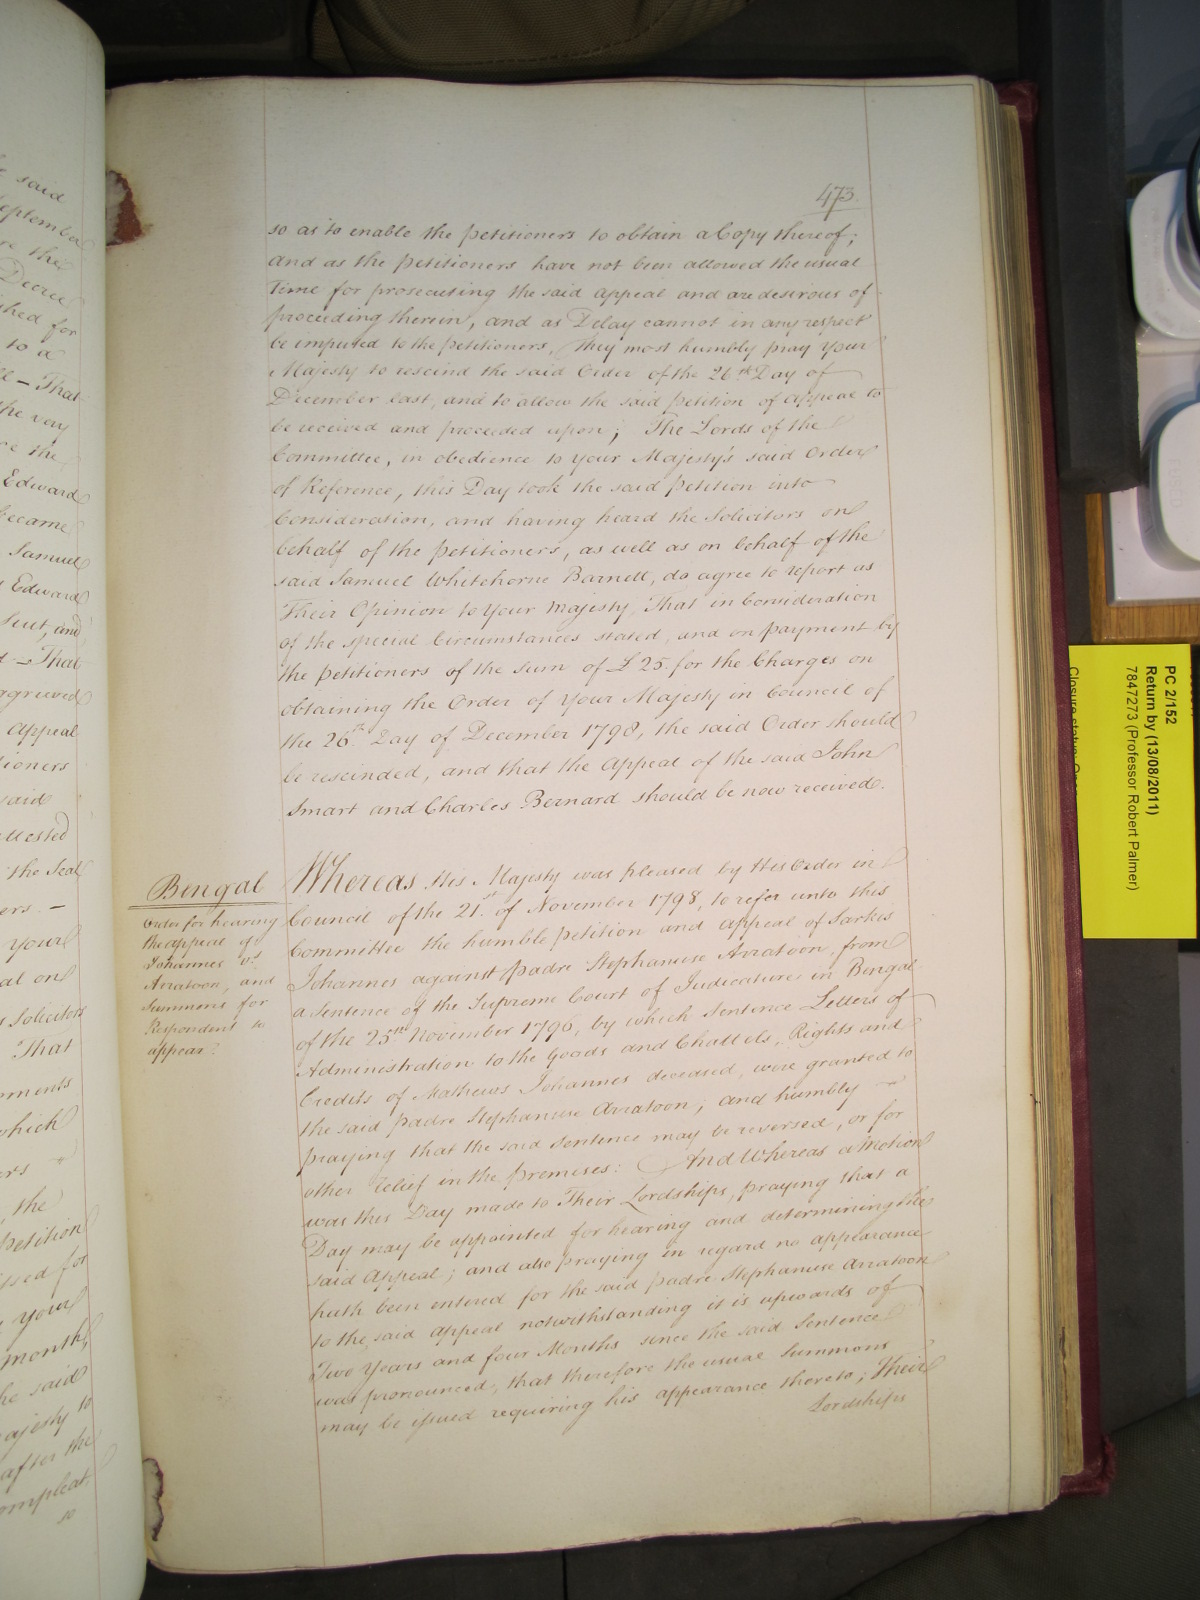 473.
so as to enable the petitioners to obtain a Copy thereof;
and as the petitioners have not been allowed the usual
Time for prosecuting the said appeal and are desirous of
proceeding therein, and as Delay cannot in any respect
be imputed to the petitioners, They most humbly pray Your
Majesty to rescind the said Order of the 26th Day of
December last, and to allow the said petition of appeal to
be received and proceeded upon; The Lords of the
Committee, in obedience to Your Majesty's said Order
of Reference, this Day took the said petition into
Consideration, and having heard the Solicitors on
behalf of the petitioners, as well as on behalf of the
said Samuel Whitehorne Barnell, do agree to report as
Their Opinion to Your Majesty, That in Consideration
of the special Circumstances stated, and on payment by
the petitioners of the sum of £25. for the Charges on
obtaining the Order of Your Majesty in Council of
the 26th Day of December 1798, the said Order should
be rescinded, and that the Appeal of the said John
Smart and Charles Bernard should be now received.
Bengal
Order for hearing
the appeal of
Johannes vs.
Arratoon, and
Summons for
Respondent to
appear.
Whereas His Majesty was pleased by His Order in
Council of the 21st of November 1798, to refer unto this
Committee the humble petition and appeal of Sarkis
Johannes against Padre Stephanuse Arratoon, from
a Sentence of the Supreme Court of Judicature in Bengal
of the 25th November 1796, by which Sentence Letters of
Administration to the Goods and Chattels, Rights and
Credits of Mathews Johannes deceased, were granted to
the said Padre Stephanuse Arratoon; and humbly
praying that the said Sentence may be reversed, or for
other relief in the premises: And Whereas a Motion
was this Day made to Their Lordships, praying that a
Day may be appointed for hearing and determining the
said Appeal; and also praying in regard no appearance
hath been entered for the said Padre Stephanuse Arratoon
to the said Appeal notwithstanding it is upwards of
Two Years and four Months since the said Sentence
was pronounced, that therefore the usual Summons
may be issued requiring his appearance thereto; Their
Lordships
PC 2/152
Return by (13/08/2011)
7847273 (Professor Robert Palmer)